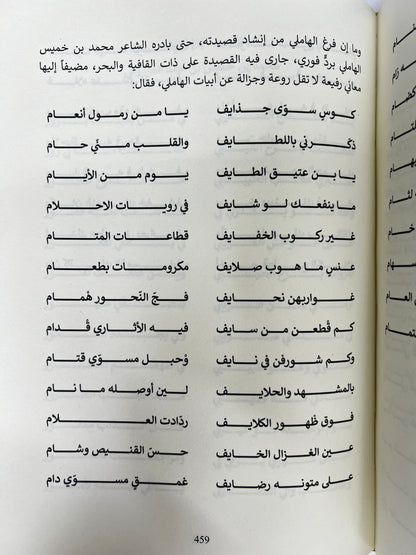 وما إن فرغ الهاملي من إنشاد قصيدته، حتى بادره الشاعر محمد بن خميس
الهاملي بردٍّ فوري، جارى فيه القصيدة على ذات القافية والبحر، مضيفاً إليها
معاني رفيعة لا تقل روعة وجزالة عن أبيات الهاملي، فقال:
كوسٍ سوّى جذايف يا من رسول أنعام
ذكّرني باللطايف والقلب منّي حام
يا بن عتيق الطايف يوم من الأيام
ما ينفعك لو شايف في رويات الاحلام
غير ركوب الخفايف قطاعات المتام
عنسٍ ما هوب صلايف مكرومات بطعام
غواربهن نحايف فجّ النّحور هْمام
كم قْطعن من سايف فيه الأثاري قْدام
وكم شورفن في نايف وْحبل مسوّي قتام
بالمشهد والحلايف لين أوصله ما نام
فوق ظْهور الكلايف ردّادت العلام
عين الغزال الخايف حسّ القنيص وشام
على متونه رضايف غمقٍ مسوّي دام
459
كضام
يهام
لثام
خام
سهام
العام